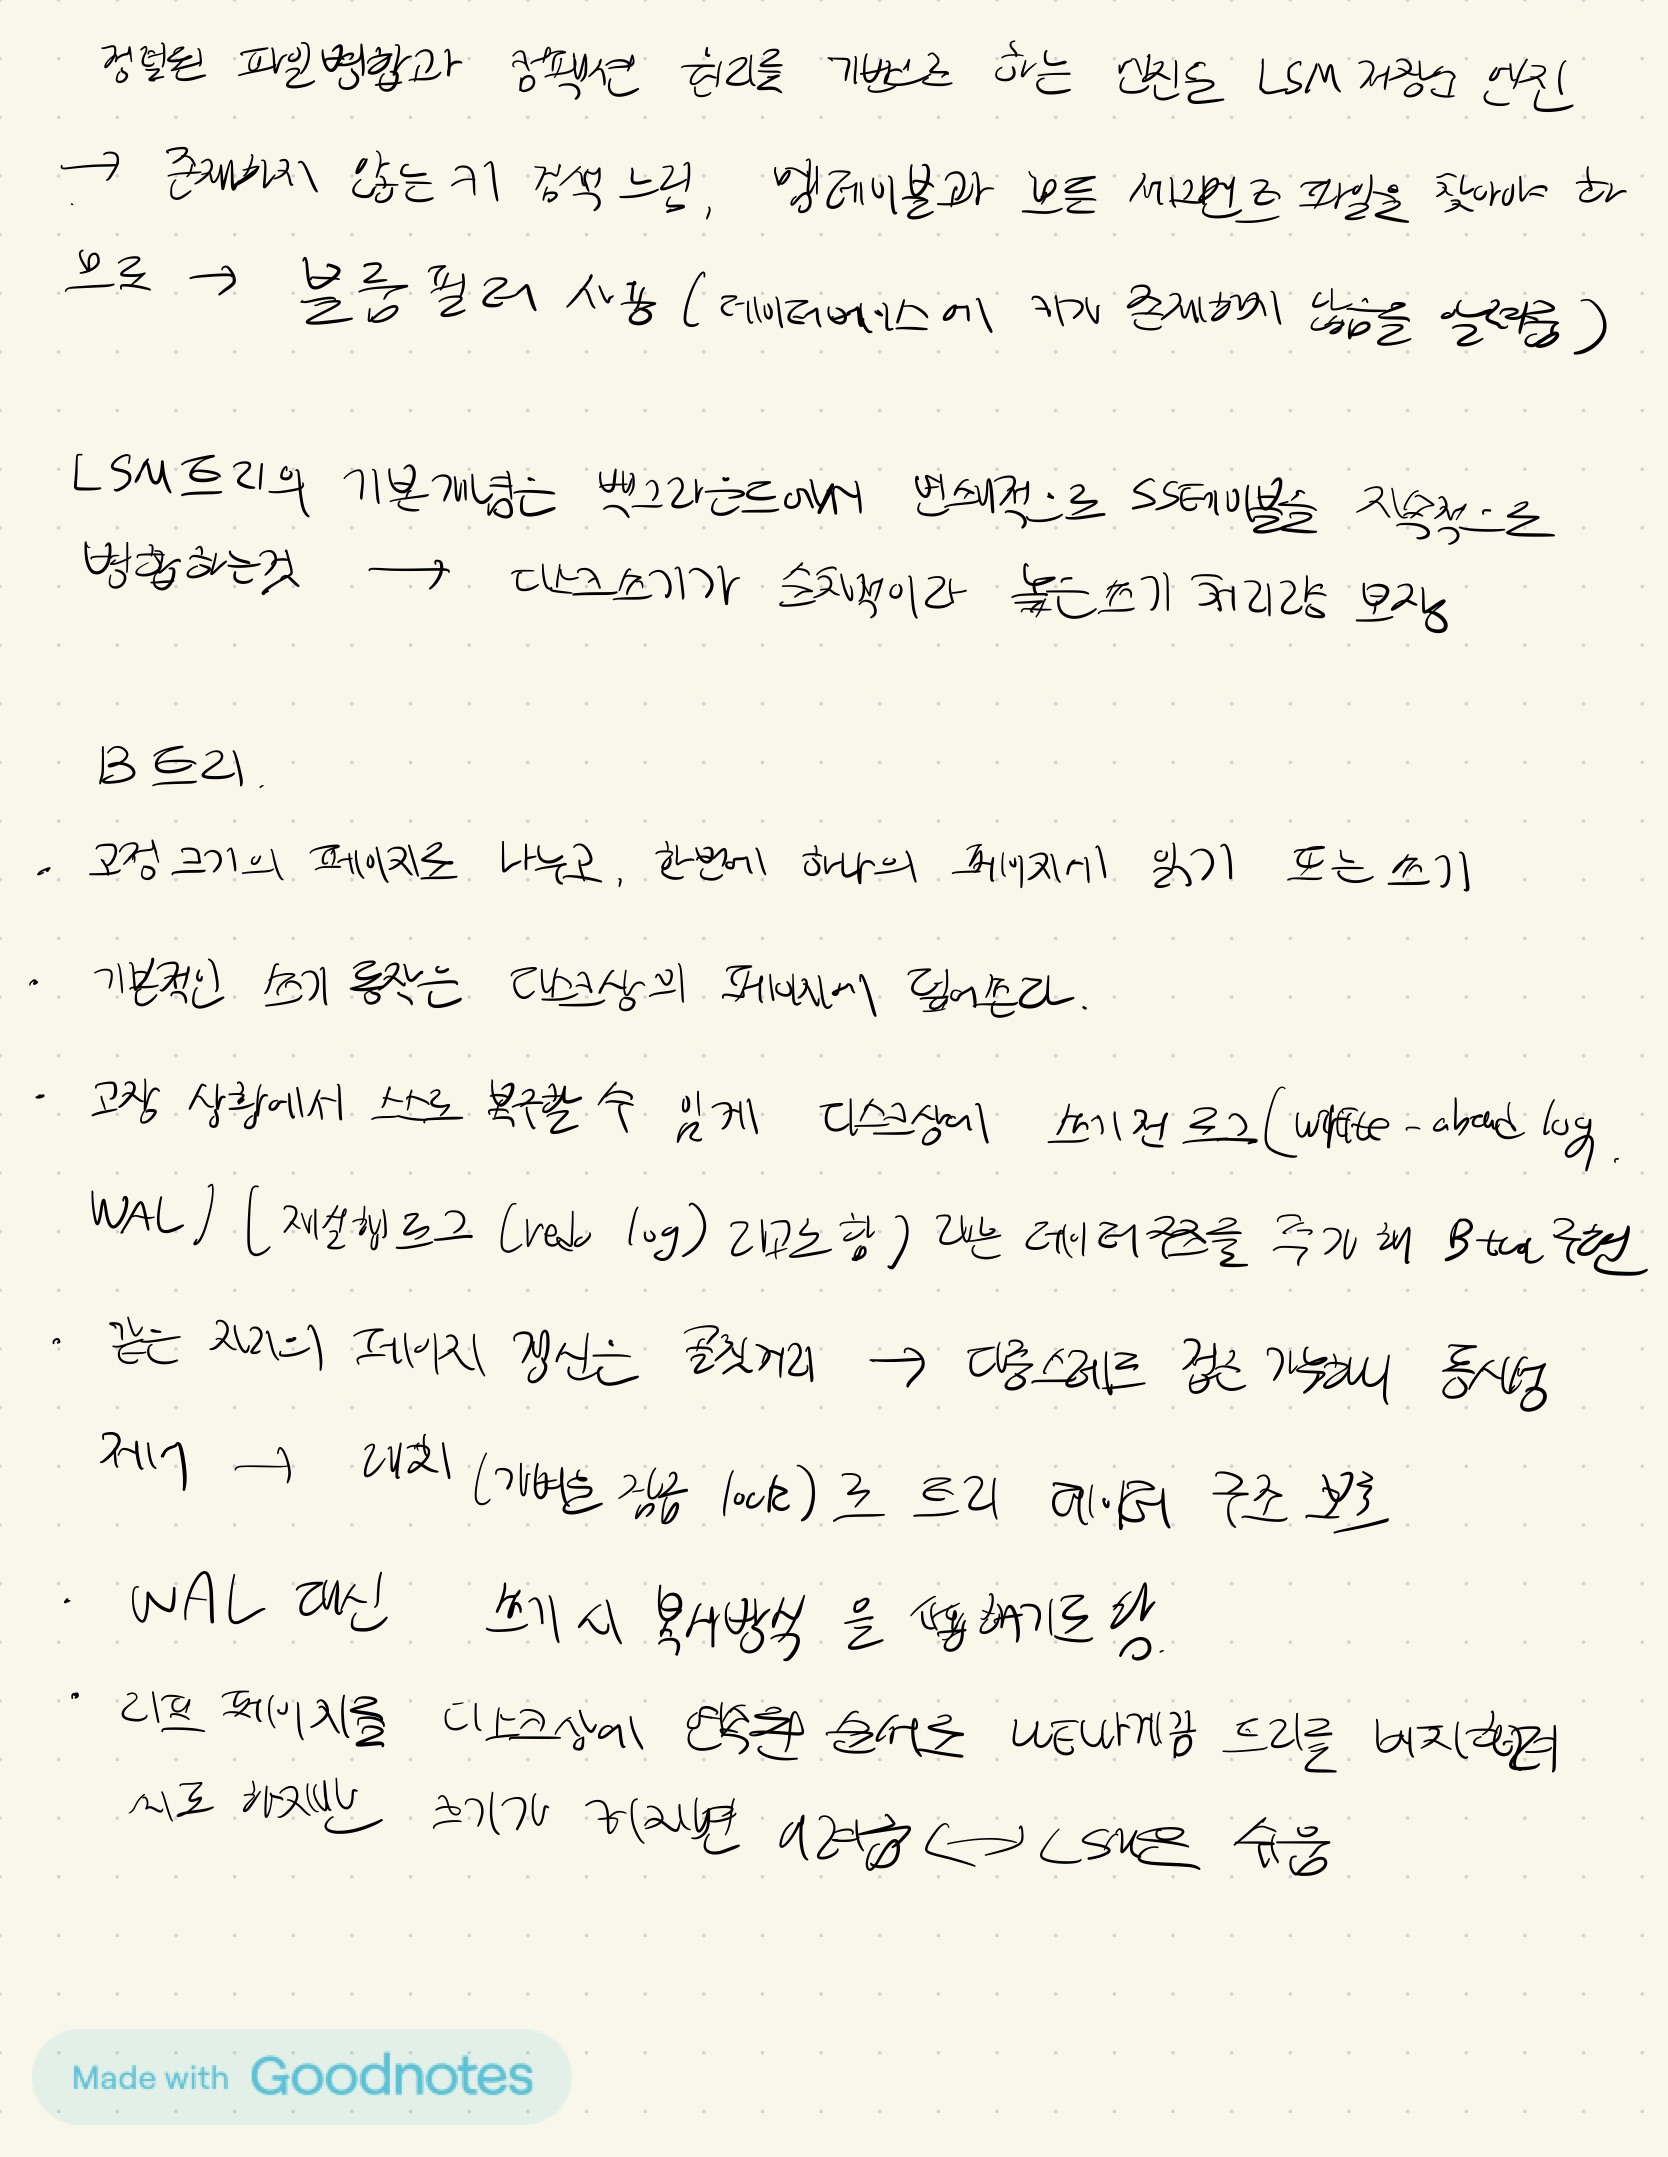 정렬된 파일병합과 컴팩션 원리를 기반으로 하는 엔진들 LSM 저장소 엔진
→ 존재하지 않는 키 검색 느림, 멤테이블과 모든 세그먼트 파일을 찾아야 하
므로 → 블룸 필터 사용 (데이터베이스에 키가 존재하지 않음을 알려줌)
LSM트리의 기본개념은 백그라운드에서 연쇄적으로 SS테이블을 지속적으로
병합하는것 → 디스크쓰기가 순차적이라 높은쓰기 처리량 보장
B 트리.
· 고정 크기의 페이지로 나누고, 한번에 하나의 페이지에 읽기 또는 쓰기
· 기본적인 쓰기 동작은 디스크상의 페이지에 덮어쓴다.
· 고장 상황에서 스스로 복구할 수 있게 디스크상에 쓰기전 로그(write-ahead log.
WAL) (재실행 로그 (redo log) 라고도 함) 라는 데이터구조를 추가해 B tree 구현
· 같은 자리의 페이지 갱신은 골칫거리 → 다중스레드 접근 가능하니 동시성
제어 → 래치 (가벼운 잠금 lock)로 트리 데이터 구조 보호
· WAL 대신 쓰기 시 복사방식 을 사용하기도 함.
· 리프 페이지를 디스크상에 연속된 순서로 나타나게끔 트리를 배치하려
시도 하지만 크기가 커지면 어려움 ↔ LSM은 쉬움
Made with Goodnotes